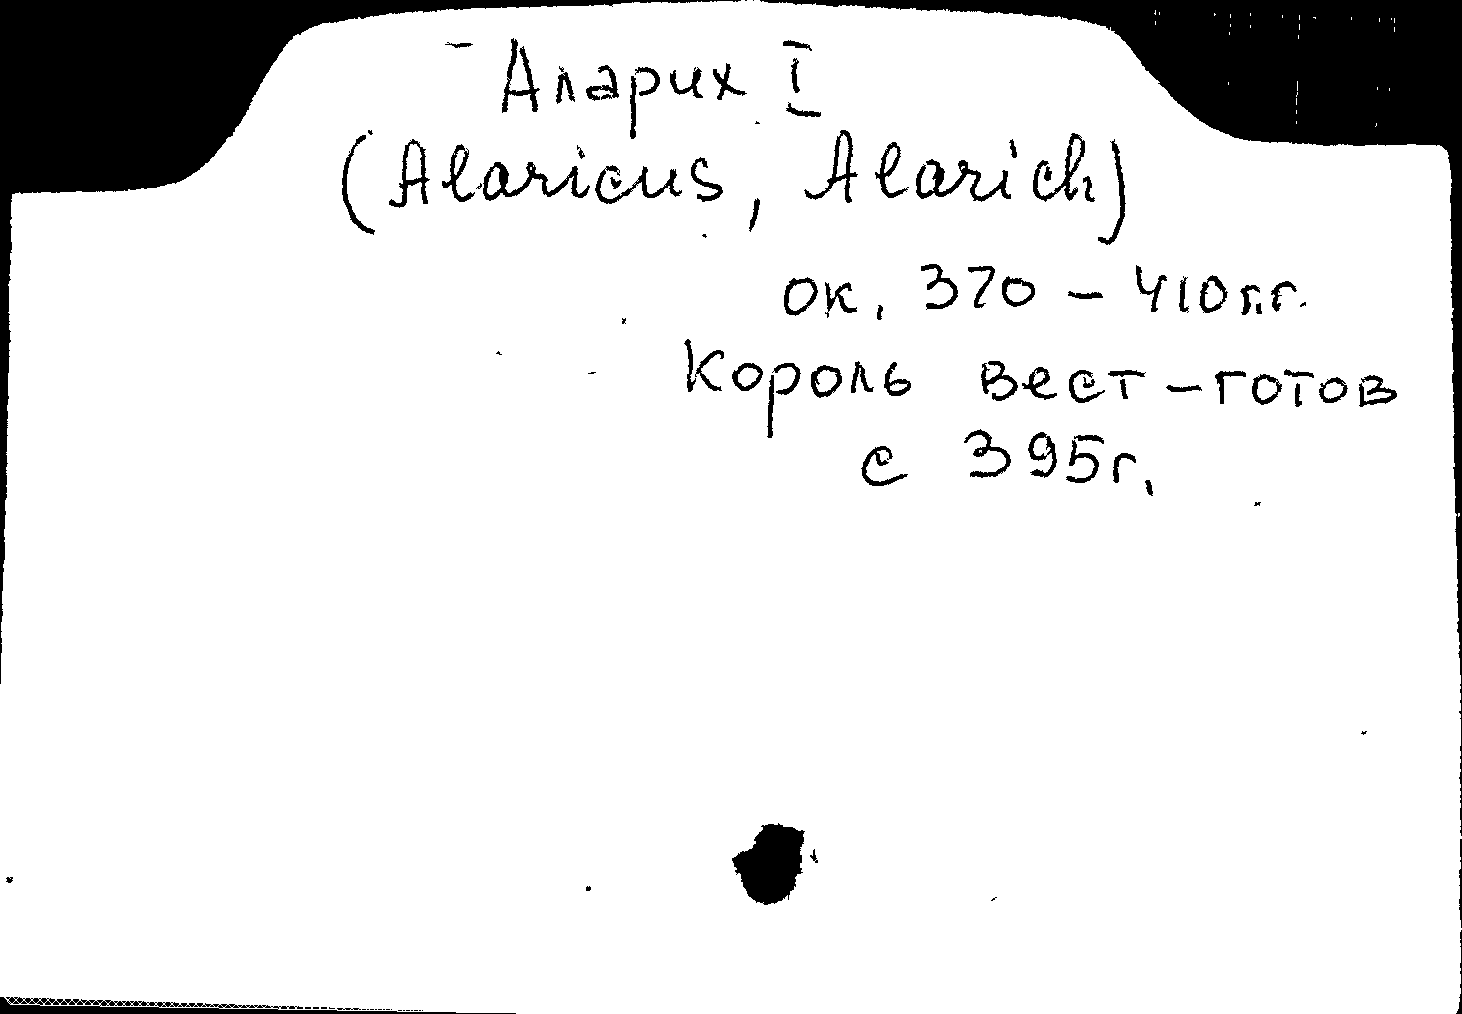 Аларих I
(Alaricus, Alarich)
ок. 370 - 410 г.г.
Король вест-готов
с 395г.